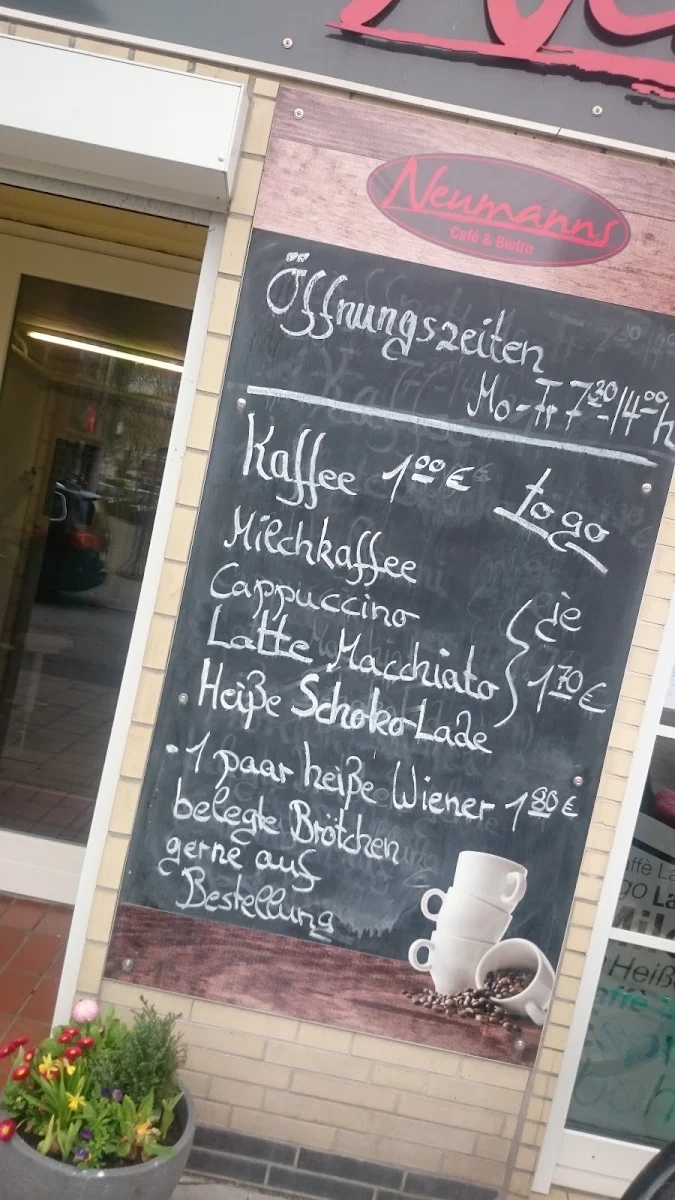 Neumanns
Café & Bistro
Öffnungszeiten
Mo-Fr 7³⁰-/14⁰⁰h
Kaffee 1⁰⁰€ to go
Milchkaffee
Cappuccino
Latte Macchiato
Heiße Schoko-Lade
je
1⁷⁰€
- 1 paar heiße Wiener 1⁸⁰€
belegte Brötchen
gerne auf
Bestellung